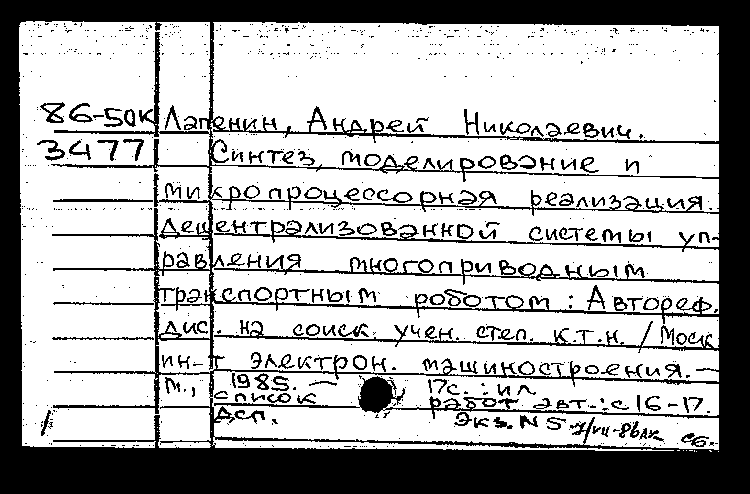 86-50К Лапенин, Андрей Николаевич.
3477 Синтез, моделирование и
микропроцессорная реализация
децентрализованной системы уп-
равления многоприводным
транспортным роботом : Автореф.
дис. на соиск. учен. степ. к.т.н. / Моск.
ин-т электрон. машиностроения. —
М., 1985. — 17с. : ил.
список работ авт.: с 16-17.
Дсп. Экз. N 5